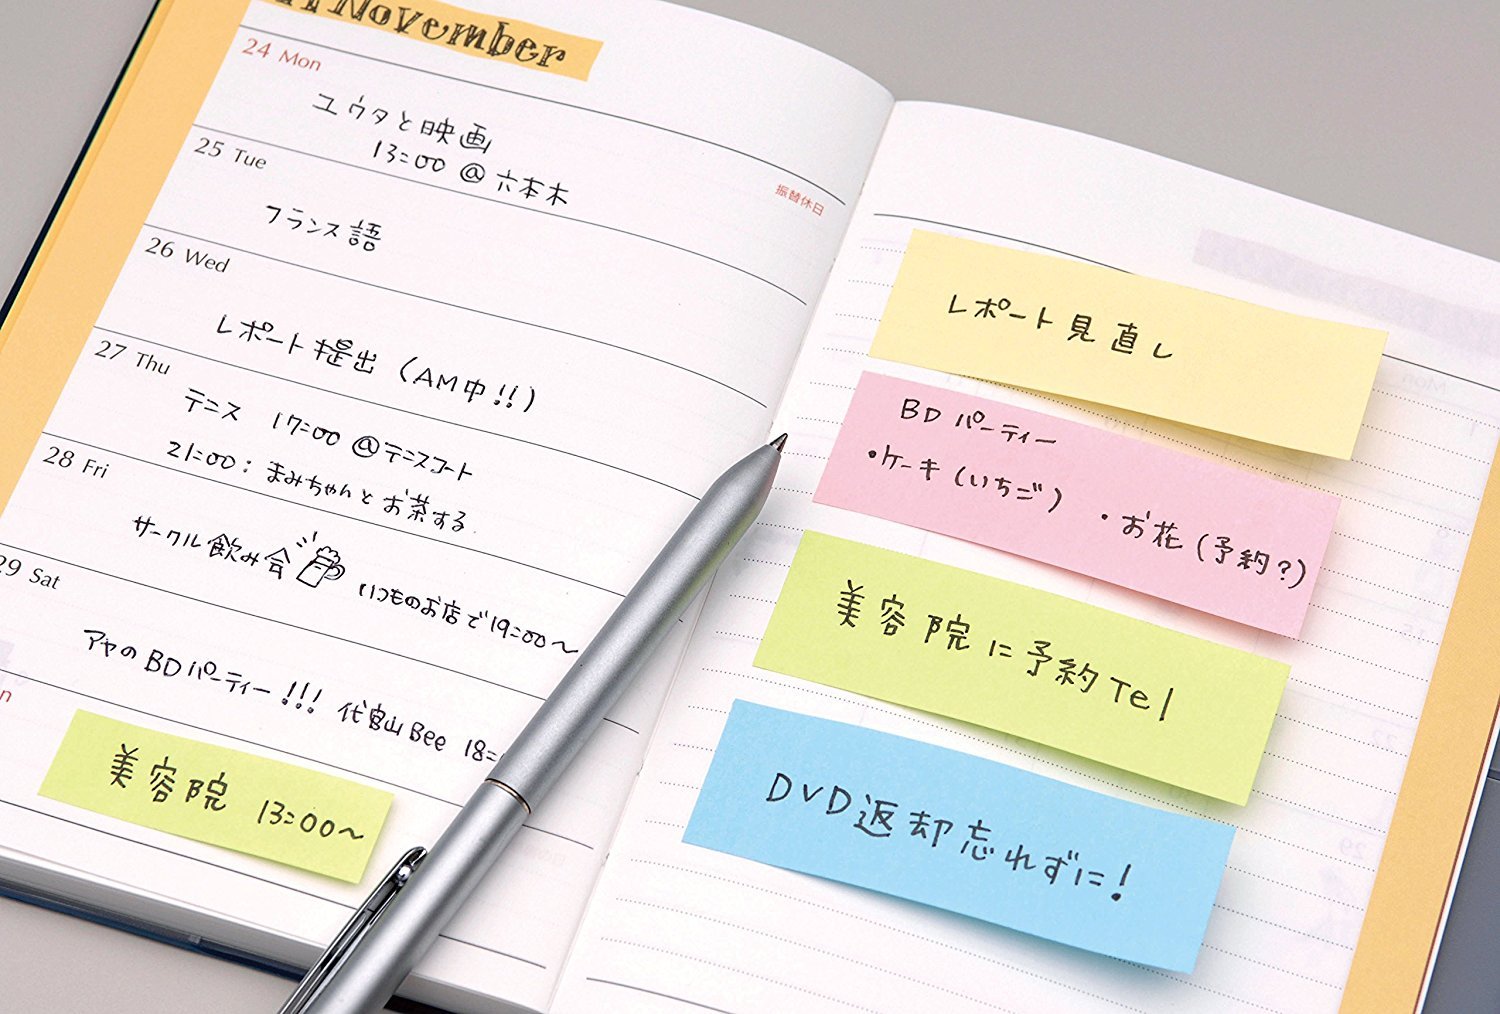 November
24 Mon
ユウタと映画
13:00 @ 六本木
振替休日
25 Tue
フランス語
26 Wed
レポート提出 (AM中!!)
27 Thu
テニス 17:00 @テニスコート
21:00: まみちゃんとお茶する
28 Fri
サークル飲み会 いつものお店で19:00〜
29 Sat
アヤのBDパーティー!!! 代官山Bee 18:
美容院 13:00〜
レポート見直し
BDパーティー
・ケーキ(いちご) ・お花(予約?)
美容院に予約Tel
DVD返却忘れずに!